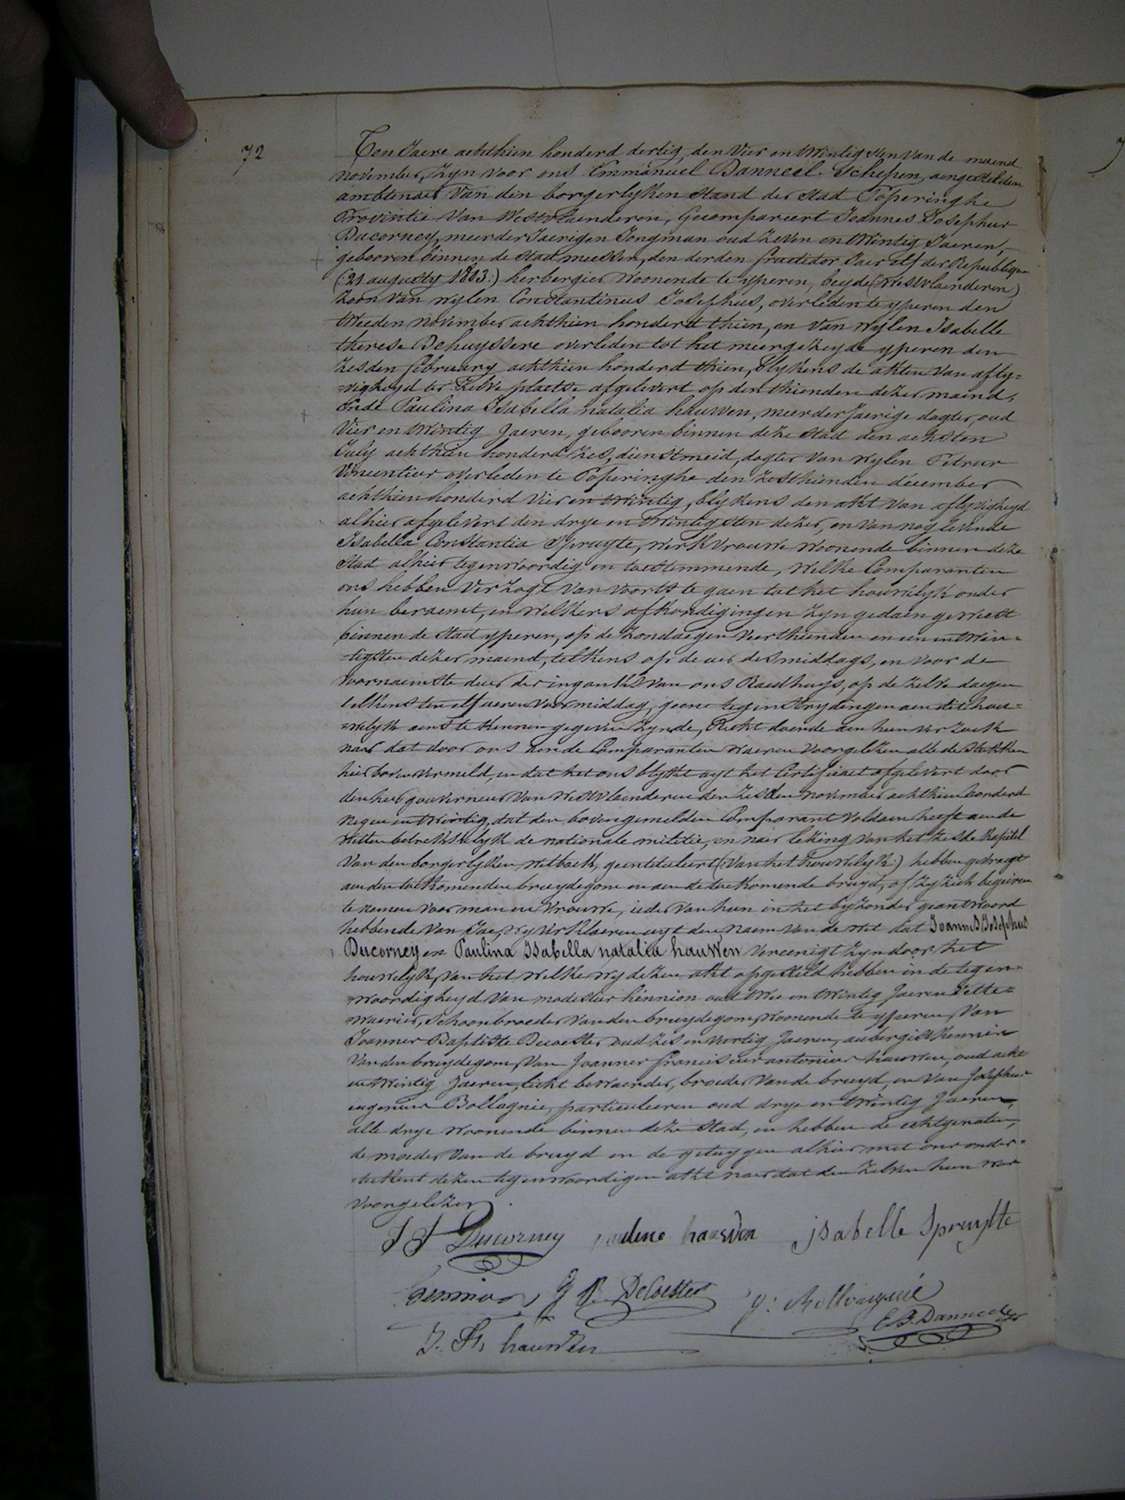 72
Ten Jaere achthien honderd dertig, den Vier en twintigsten van de maend
november, Zyn voor ons Emmanuel Danneel Schepen, aengestelden
ambtenaer van den borgerlyken Stand der Stad Poperinghe
Provintie van Westvlaenderen, Gecompareert Joannes Josephus
Ducorney, meerderJaerigen Jongman oud Zeven en twintig Jaeren,
gebooren binnen de Stad meessen, den derden fructidor Jaer elf der Republique
(21 augusty 1803.) herbergier woonende te yperen, beyde (Westvlaenderen)
Zoon van wylen Constantinus Josephus, overleden te yperen den
tweeden november achthien honderd thien, en van wylen Isabelle
therese Dehuyssere overleden tot het meergezeyde yperen den
Zesden february achthien honderd thien, blykens de akten van afly-
-vigheyd ter Zelve plaetse afgelevert op den thienden dezer maend,
Ende Paulina Isabella natalia hauwen, meerderJaerige dogter, oud
Vier en twintig Jaeren, gebooren binnen deze Stad den achsten
July achthien honderd Zes, dienstmeid, dogter van wylen Petrus
Vincentius overleden te Poperinghe den Zesthienden december
achthien honderd vier en twintig, blykens den akt van aflyvigheyd
alhier afgelevert den drye en twintigsten dezer, en van nog levende
Isabella Constantia Spruyte, werkvrouwe woonende binnen deze
Stad alhier tegenwoordig en toestemmende, Welke Comparanten
ons hebben verzogt van voorts te gaen tot het houwelyk onder
hun beraemt, en welkers afkondigingen Zyn gedaen geweest
binnen de Stad yperen, op de Zondaegen veerthienden en een en twin-
-tigsten dezer maend, telkens op de uer des middags, en voor de
voornaemste deur der ingank van ons Raedhuys, op de Zelve daegen
telkens ten elf ueren voormiddag, geene tegenstrydingen aen dit hou-
-welyk aen ons te kennen gegeven Zynde, Recht doende aen hun verzoek
naer dat door ons aen de Comparanten waeren voorgelezen alle de Stukken
hier boven vermeld, en dat het ons blykt uyt het Certificaet afgelevert door
den heer gouverneur van Westvlaenderen den Zesden november achthien honderd
negen en twintig, dat den bovengemelden Comparant voldaen heeft aen de
Wetten betrekkelyk de nationale militie, en naer lezing van het Zesde Kapitel
van den borgerlyken Wetboek, geentituleert (van het houwelyk) hebben gevraegt
aen den toekomenden bruydegom en aen de toekomende bruyd, of Zy Zich begeeren
te nemen voor man en vrouwe, ieder van hun in het byzonder geantwoord
hebbende van Jae, Wy verklaeren uyt den naem van de Wet dat Joannes Josephus
Ducorney en Paulina Isabella natalia hauwen vereenigt Zyn door het
houwelyk, van het welke wy dezen akt opgesteld hebben in de tegen-
-woordigheyd van modestus hennion oud twee en twintig Jaeren,
Schoonbroeder van den bruydegom, woonende te yperen, van
Joannes Baptiste Decoester oud Zes en veertig Jaeren, aubergist kennis
van den bruydegom, van Joannes franciscus antonius hauwen, oud acht
en twintig Jaeren, broeder van de bruyd, en van Josephus
eugenius Bollaynie, particulieren oud drye en twintig Jaeren,
alle drye woonende binnen deze Stad, en hebben de echtgenoten,
de moeder van de bruyd en de getuygen alhier met ons onder-
-teekent dezen tegenwoordigen akt naer dat den Zelven hun was
voorgelezen
J J Ducorney pauline hauwen isabelle Spruytte
hennion J B DeCoester
E. J. Danneel
J. Fr hauwen